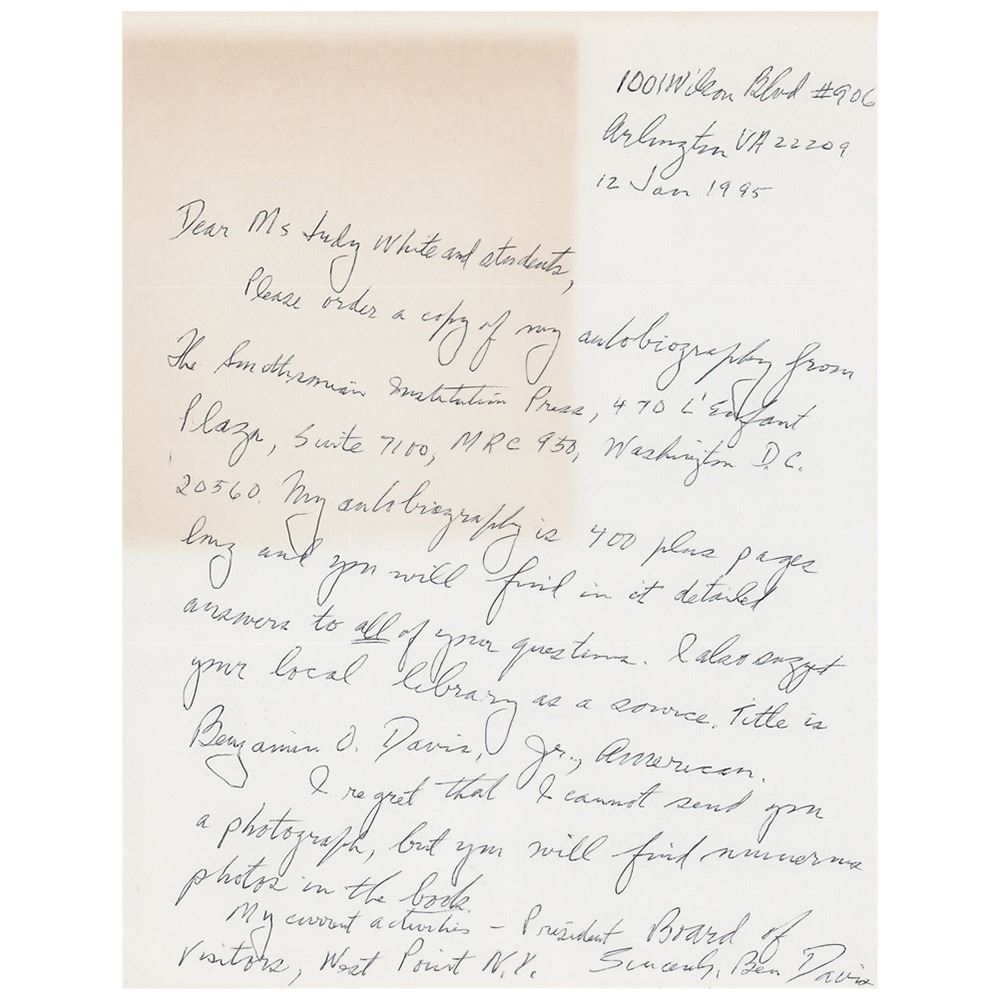 1001 Wilson Blvd #906
Arlington VA 22209
12 Jan 1995
Dear Ms Judy White and students,
Please order a copy of my autobiography from
The Smithsonian Institution Press, 470 L'Enfant
Plaza, Suite 7100, MRC 950, Washington D.C.
20560. My autobiography is 400 plus pages
long and you will find in it detailed
answers to all of your questions. I also suggest
your local library as a source. Title is
Benjamin O. Davis, Jr., American.
I regret that I cannot send you
a photograph, but you will find numerous
photos in the book.
My current activities - President Board of
Visitors, West Point N.Y. Sincerely, Ben Davis